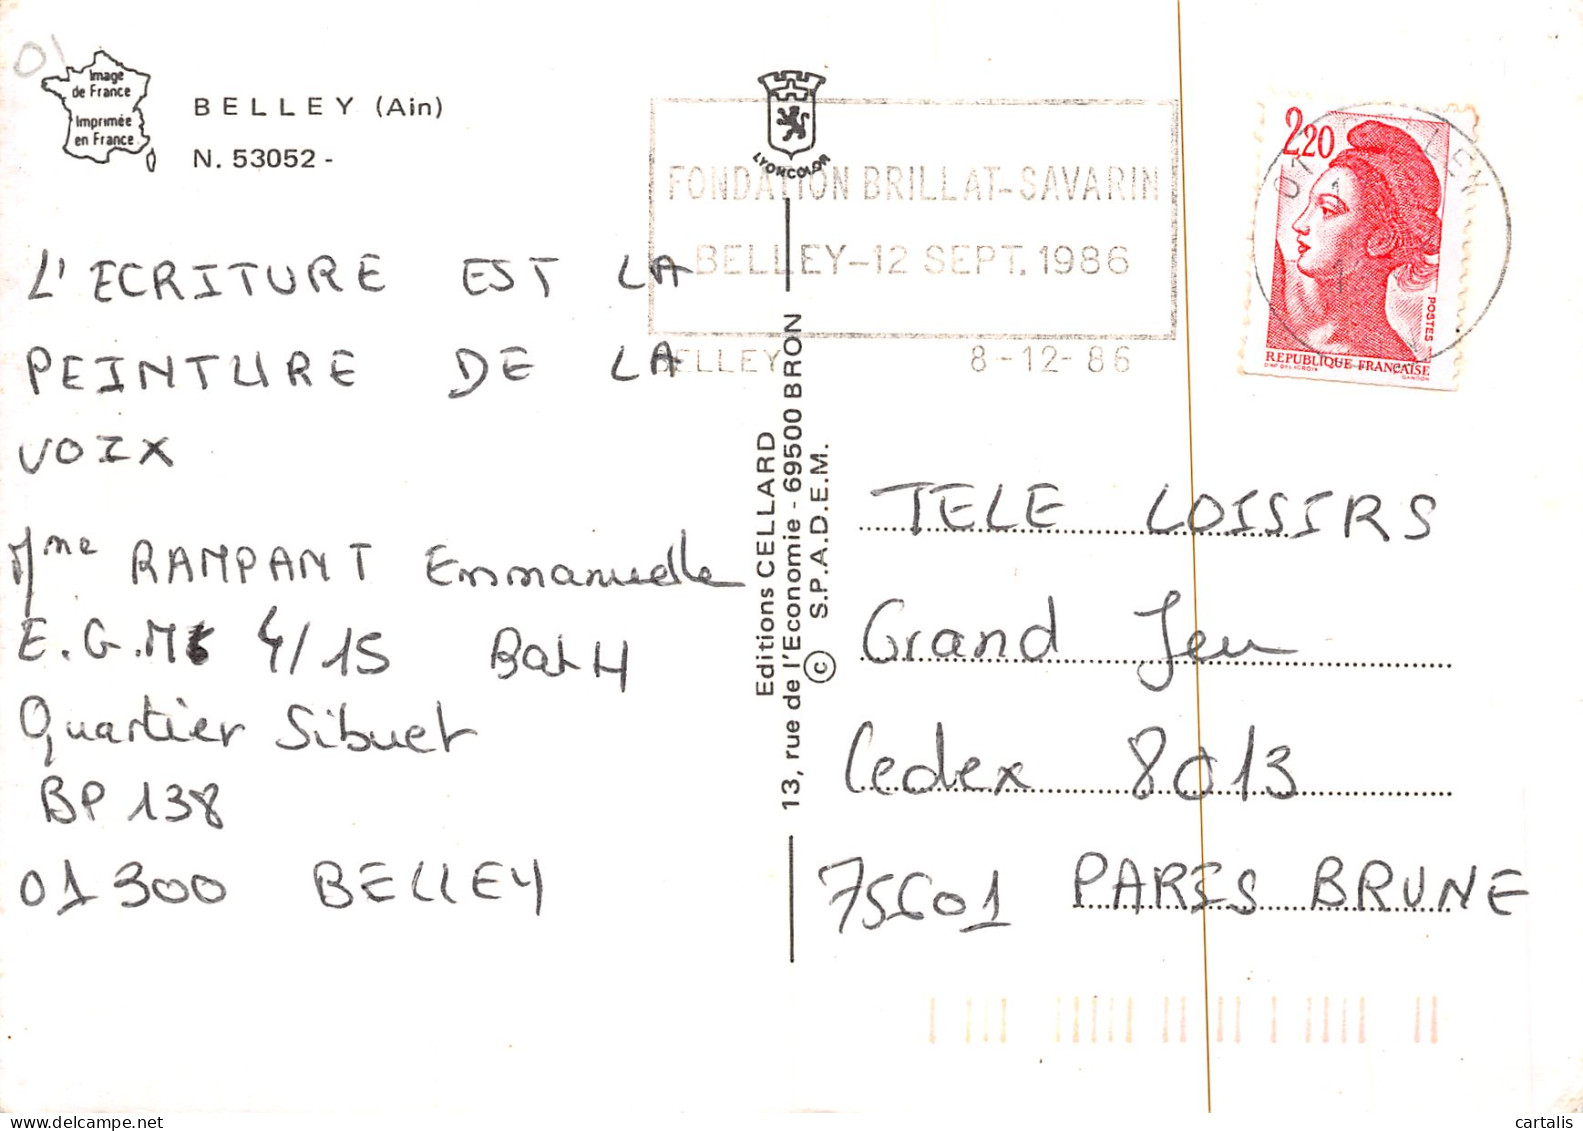 01
Image
de France
Imprimée
en France
BELLEY (Ain)
N. 53052 -
L'ECRITURE EST LA
PEINTURE DE LA
VOIX
Mme RAMPANT Emmanuelle
E.G.M 4/15 Bat H
Quartier Sibuet
BP 138
01300 BELLEY
LYONCOLOR
Editions CELLARD
13, rue de l'Economie - 69500 BRON
© S.P.A.D.E.M.
FONDATION BRILLAT-SAVARIN
BELLEY-12 SEPT. 1986
BELLEY 8-12-86
2,20
POSTES
REPUBLIQUE FRANÇAISE
D'AP. DELACROIX GANDON
TELE LOISIRS
Grand Jeu
Cedex 8013
75601 PARIS BRUNE
cartalis